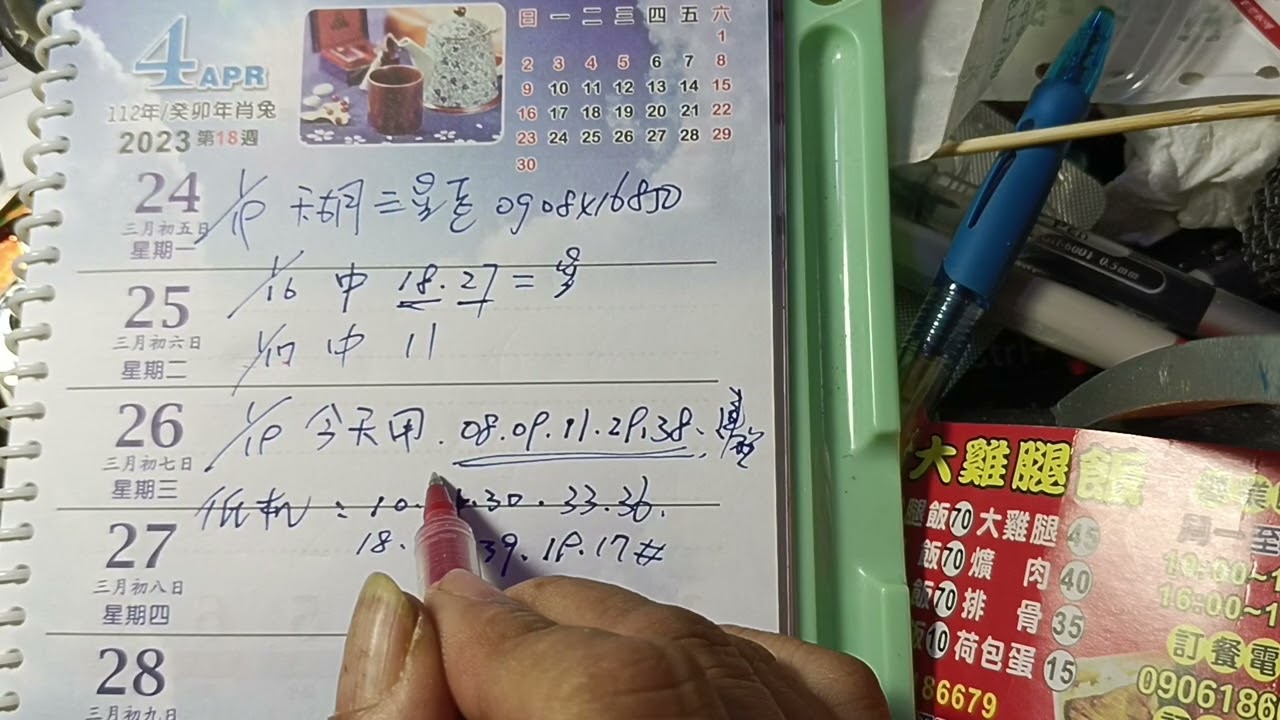 4 APR
112年/癸卯年肖兔
2023 第18週
日 一 二 三 四 五 六
1
2 3 4 5 6 7 8
9 10 11 12 13 14 15
16 17 18 19 20 21 22
23 24 25 26 27 28 29
30
24
三月初五日
星期一
25
三月初六日
星期二
1/16 中 18.27=
中 11
26
三月初七日
星期三
今天用.08.09.11.29.38、
低机:10. .30.33.36.
27
三月初八日
星期四
18. 39.19.17#
28
三月初九日
0.5mm
大雞腿飯
腿飯70 大雞腿 45
飯70 爌肉 40
飯70 排骨 35
飯10 荷包蛋 15
86679
訂餐電
0906186